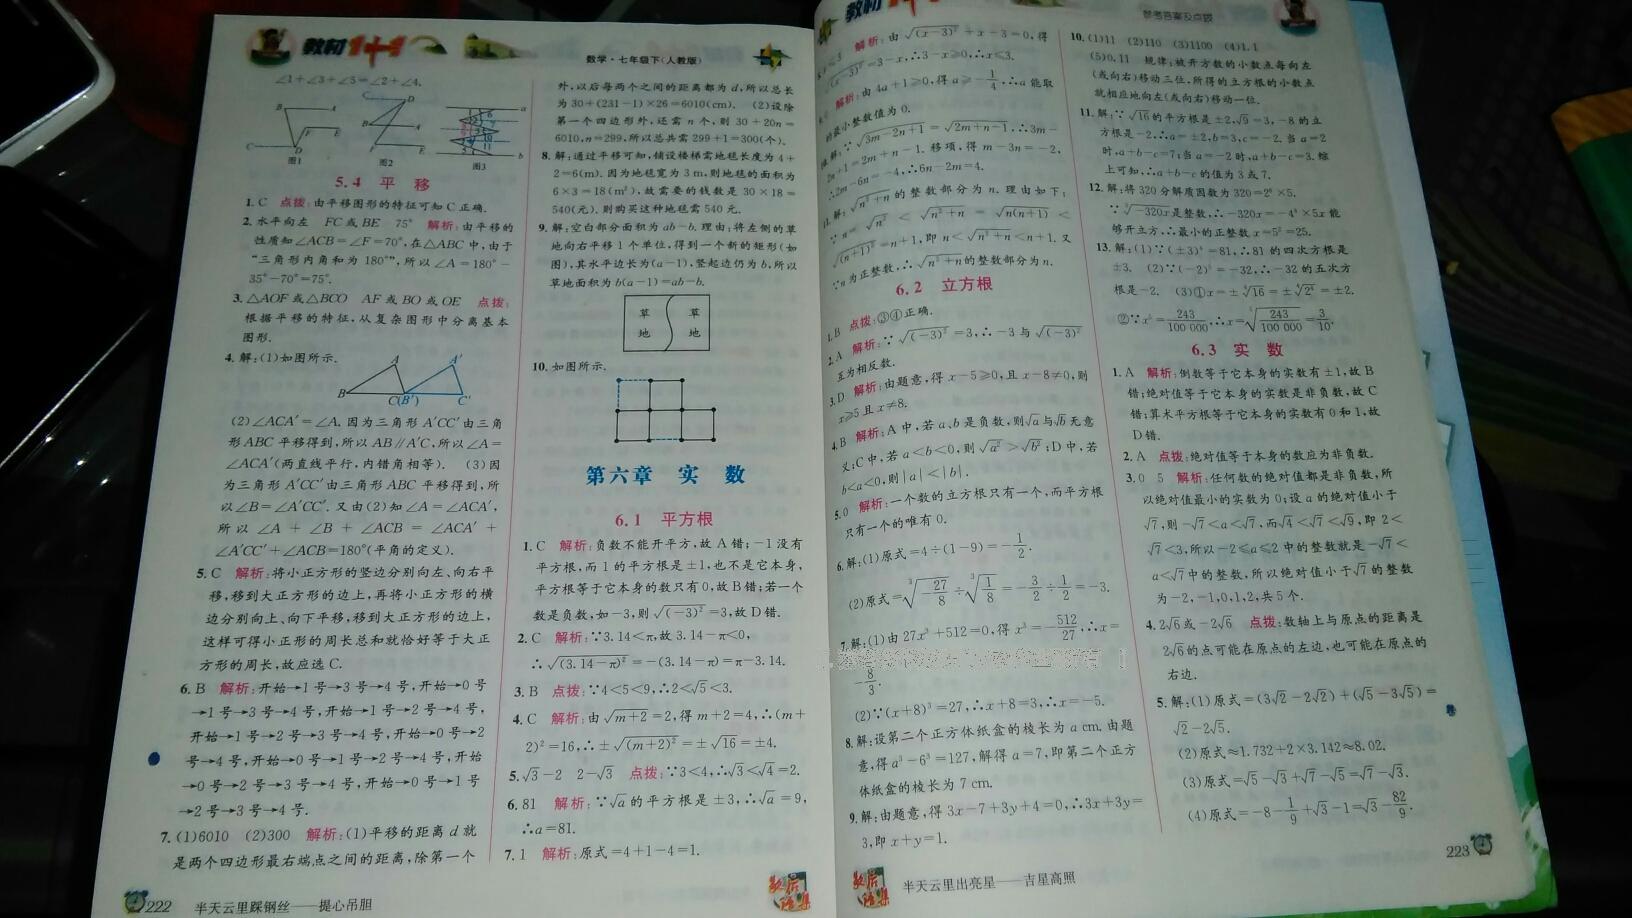 教材1+1
数学·七年级下(人教版)
∠1+∠3+∠5=∠2+∠4.
图1
图2
图3
5.4 平 移
1.C 点拨:由平移图形的特征可知C正确.
2.水平向左 FC或BE 75° 解析:由平移的
性质知∠ACB=∠F=70°,在△ABC中,由于
“三角形内角和为180°”,所以∠A=180°-
35°-70°=75°.
3.△AOF或△BCO AF或BO或OE 点拨:
根据平移的特征,从复杂图形中分离基本
图形.
4.解:(1)如图所示.
A A′
B C(B′) C′
(2)∠ACA′=∠A.因为三角形A′CC′由三角
形ABC平移得到,所以AB∥A′C,所以∠A=
∠ACA′(两直线平行,内错角相等). (3)因
为三角形A′CC′由三角形ABC平移得到,所
以∠B=∠A′CC′.又由(2)知∠A=∠ACA′,
所以∠A+∠B+∠ACB=∠ACA′+
∠A′CC′+∠ACB=180°(平角的定义).
5.C 解析:将小正方形的竖边分别向左、向右平
移,移到大正方形的边上,再将小正方形的横
边分别向上、向下平移,移到大正方形的边上,
这样可得小正形的周长总和就恰好等于大正
方形的周长,故应选C.
6.B 解析:开始→1号→3号→4号,开始→0号
→1号→3号→4号,开始→1号→2号→4号,
开始→1号→2号→3号→4号,开始→0号→2
号→4号,开始→0号→1号→2号→4号,开始
→0号→2号→3号→4号,开始→0号→1号
→2号→3号→4号.
7.(1)6010 (2)300 解析:(1)平移的距离d就
是两个四边形最右端点之间的距离,除第一个
222 半天云里踩钢丝——提心吊胆
外,以后每两个之间的距离都为d,所以总长
为30+(231-1)×26=6010(cm). (2)设除
第一个四边形外,还需n个,则30+20n=
6010,n=299,所以总共需299+1=300(个).
8.解:通过平移可知,铺设楼梯需地毯长度为4+
2=6(m).因为地毯宽为3 m,则地毯的面积为
6×3=18(m²),故需要的钱数是30×18=
540(元).则购买这种地毯需540元.
9.解:空白部分面积为ab-b.理由:将左侧的草
地向右平移1个单位,得到一个新的矩形(如
图),其水平边长为(a-1),竖起边仍为b,所以
草地面积为b(a-1)=ab-b.
草 草
地 地
10.如图所示.
第六章 实 数
6.1 平方根
1.C 解析:负数不能开平方,故A错;-1没有
平方根,而1的平方根是±1,也不是它本身,
平方根等于它本身的数只有0,故B错;若一个
数是负数,如-3,则√(-3)²=3,故D错.
2.C 解析:∵3.14<π,故3.14-π<0,
∴√(3.14-π)²=-(3.14-π)=π-3.14.
3.B 点拨:∵4<5<9,∴2<√5<3.
4.C 解析:由√m+2=2,得m+2=4,∴(m+
2)²=16,∴±√(m+2)²=±√16=±4.
5.√3-2 2-√3 点拨:∵3<4,∴√3<√4=2.
6.81 解析:∵√a的平方根是±3,∴√a=9,
∴a=81.
7.1 解析:原式=4+1-4=1.
教材1+1
参考答案及点拨
解析:由√(x-3)²+x-3=0,得
√(x-3)²=3-x,∴3-x≥0,∴x≤3.
解析:由4a+1≥0,得a≥-1/4,∴a能取
的最小整数值为0.
解:∵√3m-2n+1=√2m+n-1,∴3m-
2n+1=2m+n-1.移项,得m-3n=-2,
∴2m-6n=-4,∴6n-2m=4.
11.解:√n²+n的整数部分为n.理由如下:
∵n=√n²<√n²+n=√n(n+1)<
√(n+1)²=n+1,即n<√n²+n<n+1.又
∵n为正整数,∴√n²+n的整数部分为n.
6.2 立方根
1.B 点拨:③④正确.
2.A 解析:∵√(-3)²=3,∴-3与√(-3)²
互为相反数.
3.D 解析:由题意,得x-5≥0,且x-8≠0,则
x≥5且x≠8.
4.B 解析:A中,若a、b是负数,则√a与√b无意
义;C中,若a<b<0,则√a²>√b²;D中,若
b<a<0,则|a|<|b|.
5.0 解析:一个数的立方根只有一个,而平方根
只有一个的唯有0.
6.解:(1)原式=4÷(1-9)=-1/2.
(2)原式=∛(-27/8)÷∛(1/8)=-3/2÷1/2=-3.
7.解:(1)由27x³+512=0,得x³=-512/27,∴x=
-8/3.
(2)∵(x+8)³=27,∴x+8=3,∴x=-5.
8.解:设第二个正方体纸盒的棱长为a cm.由题
意,得a³-6³=127,解得a=7,即第二个正方
体纸盒的棱长为7 cm.
9.解:由题意,得3x-7+3y+4=0,∴3x+3y=
3,即x+y=1.
半天云里出亮星——吉星高照
10.(1)11 (2)110 (3)1100 (4)1.1
(5)0.11 规律:被开方数的小数点每向左
(或向右)移动三位,所得的立方根的小数点
就相应地向左(或向右)移动一位.
11.解:∵√16的平方根是±2,√9=3,-8的立
方根是-2,∴a=±2,b=3,c=-2.当a=2
时,a+b-c=7;当a=-2时,a+b-c=3.综
上可知,∴a+b-c的值为3或7.
12.解:将320分解质因数为320=2⁶×5.
∵∛-320x是整数,∴-320x=-4³×5x能
够开立方,∴最小的正整数x=5²=25.
13.解:(1)∵(±3)⁴=81,∴81的四次方根是
±3. (2)∵(-2)⁵=-32,∴-32的五次方
根是-2. (3)①x=±∜16=±∜2⁴=±2.
②∵x⁵=243/100 000,∴x=⁵√(243/100 000)=3/10.
6.3 实 数
1.A 解析:倒数等于它本身的实数有±1,故B
错;绝对值等于它本身的实数是非负数,故C
错;算术平方根等于它本身的实数有0和1,故
D错.
2.A 点拨:绝对值等于本身的数应为非负数.
3.0 5 解析:任何数的绝对值都是非负数,所
以绝对值最小的实数为0;设a的绝对值小于
√7,则-√7<a<√7,而√4<√7<√9,即2<
√7<3,所以-2≤a≤2中的整数就是-√7<
a<√7中的整数,所以绝对值小于√7的整数
为-2,-1,0,1,2,共5个.
4.2√6或-2√6 点拨:数轴上与原点的距离是
2√6的点可能在原点的左边,也可能在原点的
右边.
5.解:(1)原式=(3√2-2√2)+(√5-3√5)=
√2-2√5.
(2)原式≈1.732+2×3.142≈8.02.
(3)原式=√5-√3+√7-√5=√7-√3.
(4)原式=-8-1/9+√3-1=√3-82/9.
223